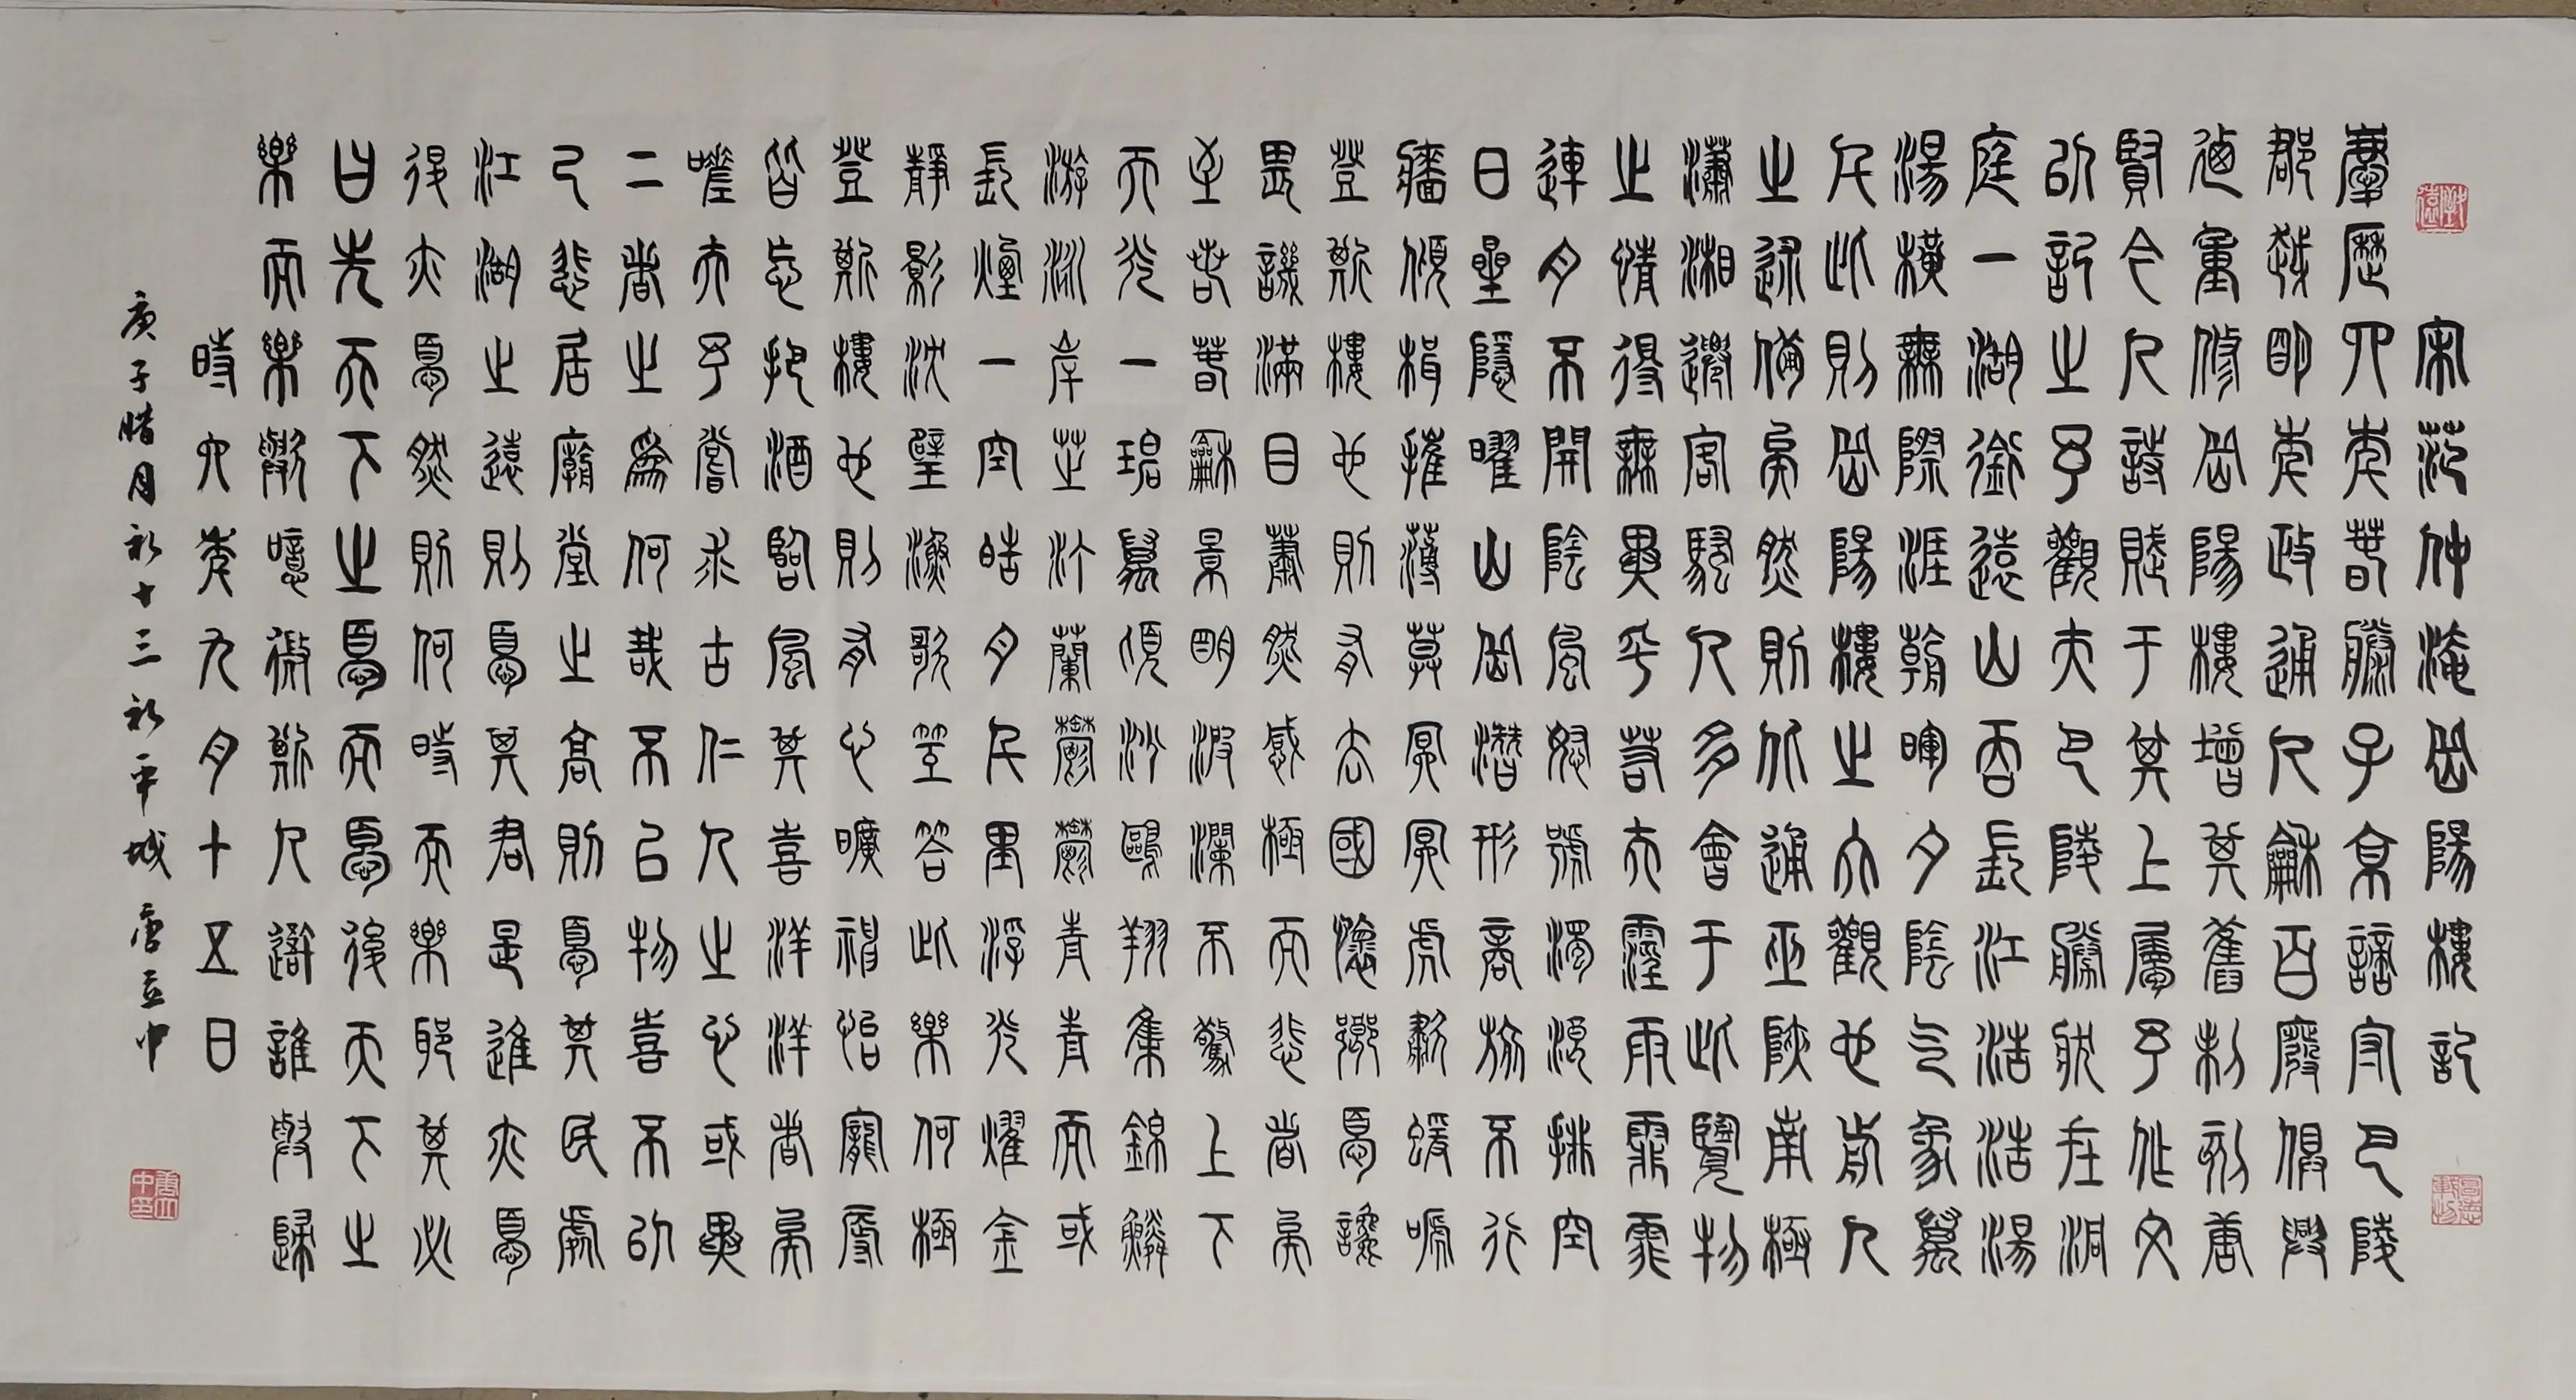 宋范仲淹岳陽樓記
慶曆四年春滕子京謫守巴陵
郡越明年政通人和百廢俱興
乃重修岳陽樓增其舊制刻唐
賢今人詩賦于其上屬予作文
以記之予觀夫巴陵勝狀在洞
庭一湖銜遠山吞長江浩浩湯
湯橫無際涯朝暉夕陰氣象萬
千此則岳陽樓之大觀也前人
之述備矣然則北通巫峽南極
瀟湘遷客騷人多會于此覽物
之情得無異乎若夫霪雨霏霏
連月不開陰風怒號濁浪排空
日星隱曜山岳潛形商旅不行
檣傾楫摧薄暮冥冥虎嘯猿啼
登斯樓也則有去國懷鄉憂讒
畏譏滿目蕭然感極而悲者矣
至若春和景明波瀾不驚上下
天光一碧萬頃沙鷗翔集錦鱗
游泳岸芷汀蘭鬱鬱青青而或
長煙一空皓月千里浮光耀金
靜影沈璧漁歌互答此樂何極
登斯樓也則有心曠神怡寵辱
皆忘把酒臨風其喜洋洋者矣
嗟夫予嘗求古仁人之心或異
二者之為何哉不以物喜不以
己悲居廟堂之高則憂其民處
江湖之遠則憂其君是進亦憂
退亦憂然則何時而樂耶其必
曰先天下之憂而憂後天下之
樂而樂歟噫微斯人吾誰與歸
時六年九月十五日
庚子腊月初十三於平城唐立中
唐立中印